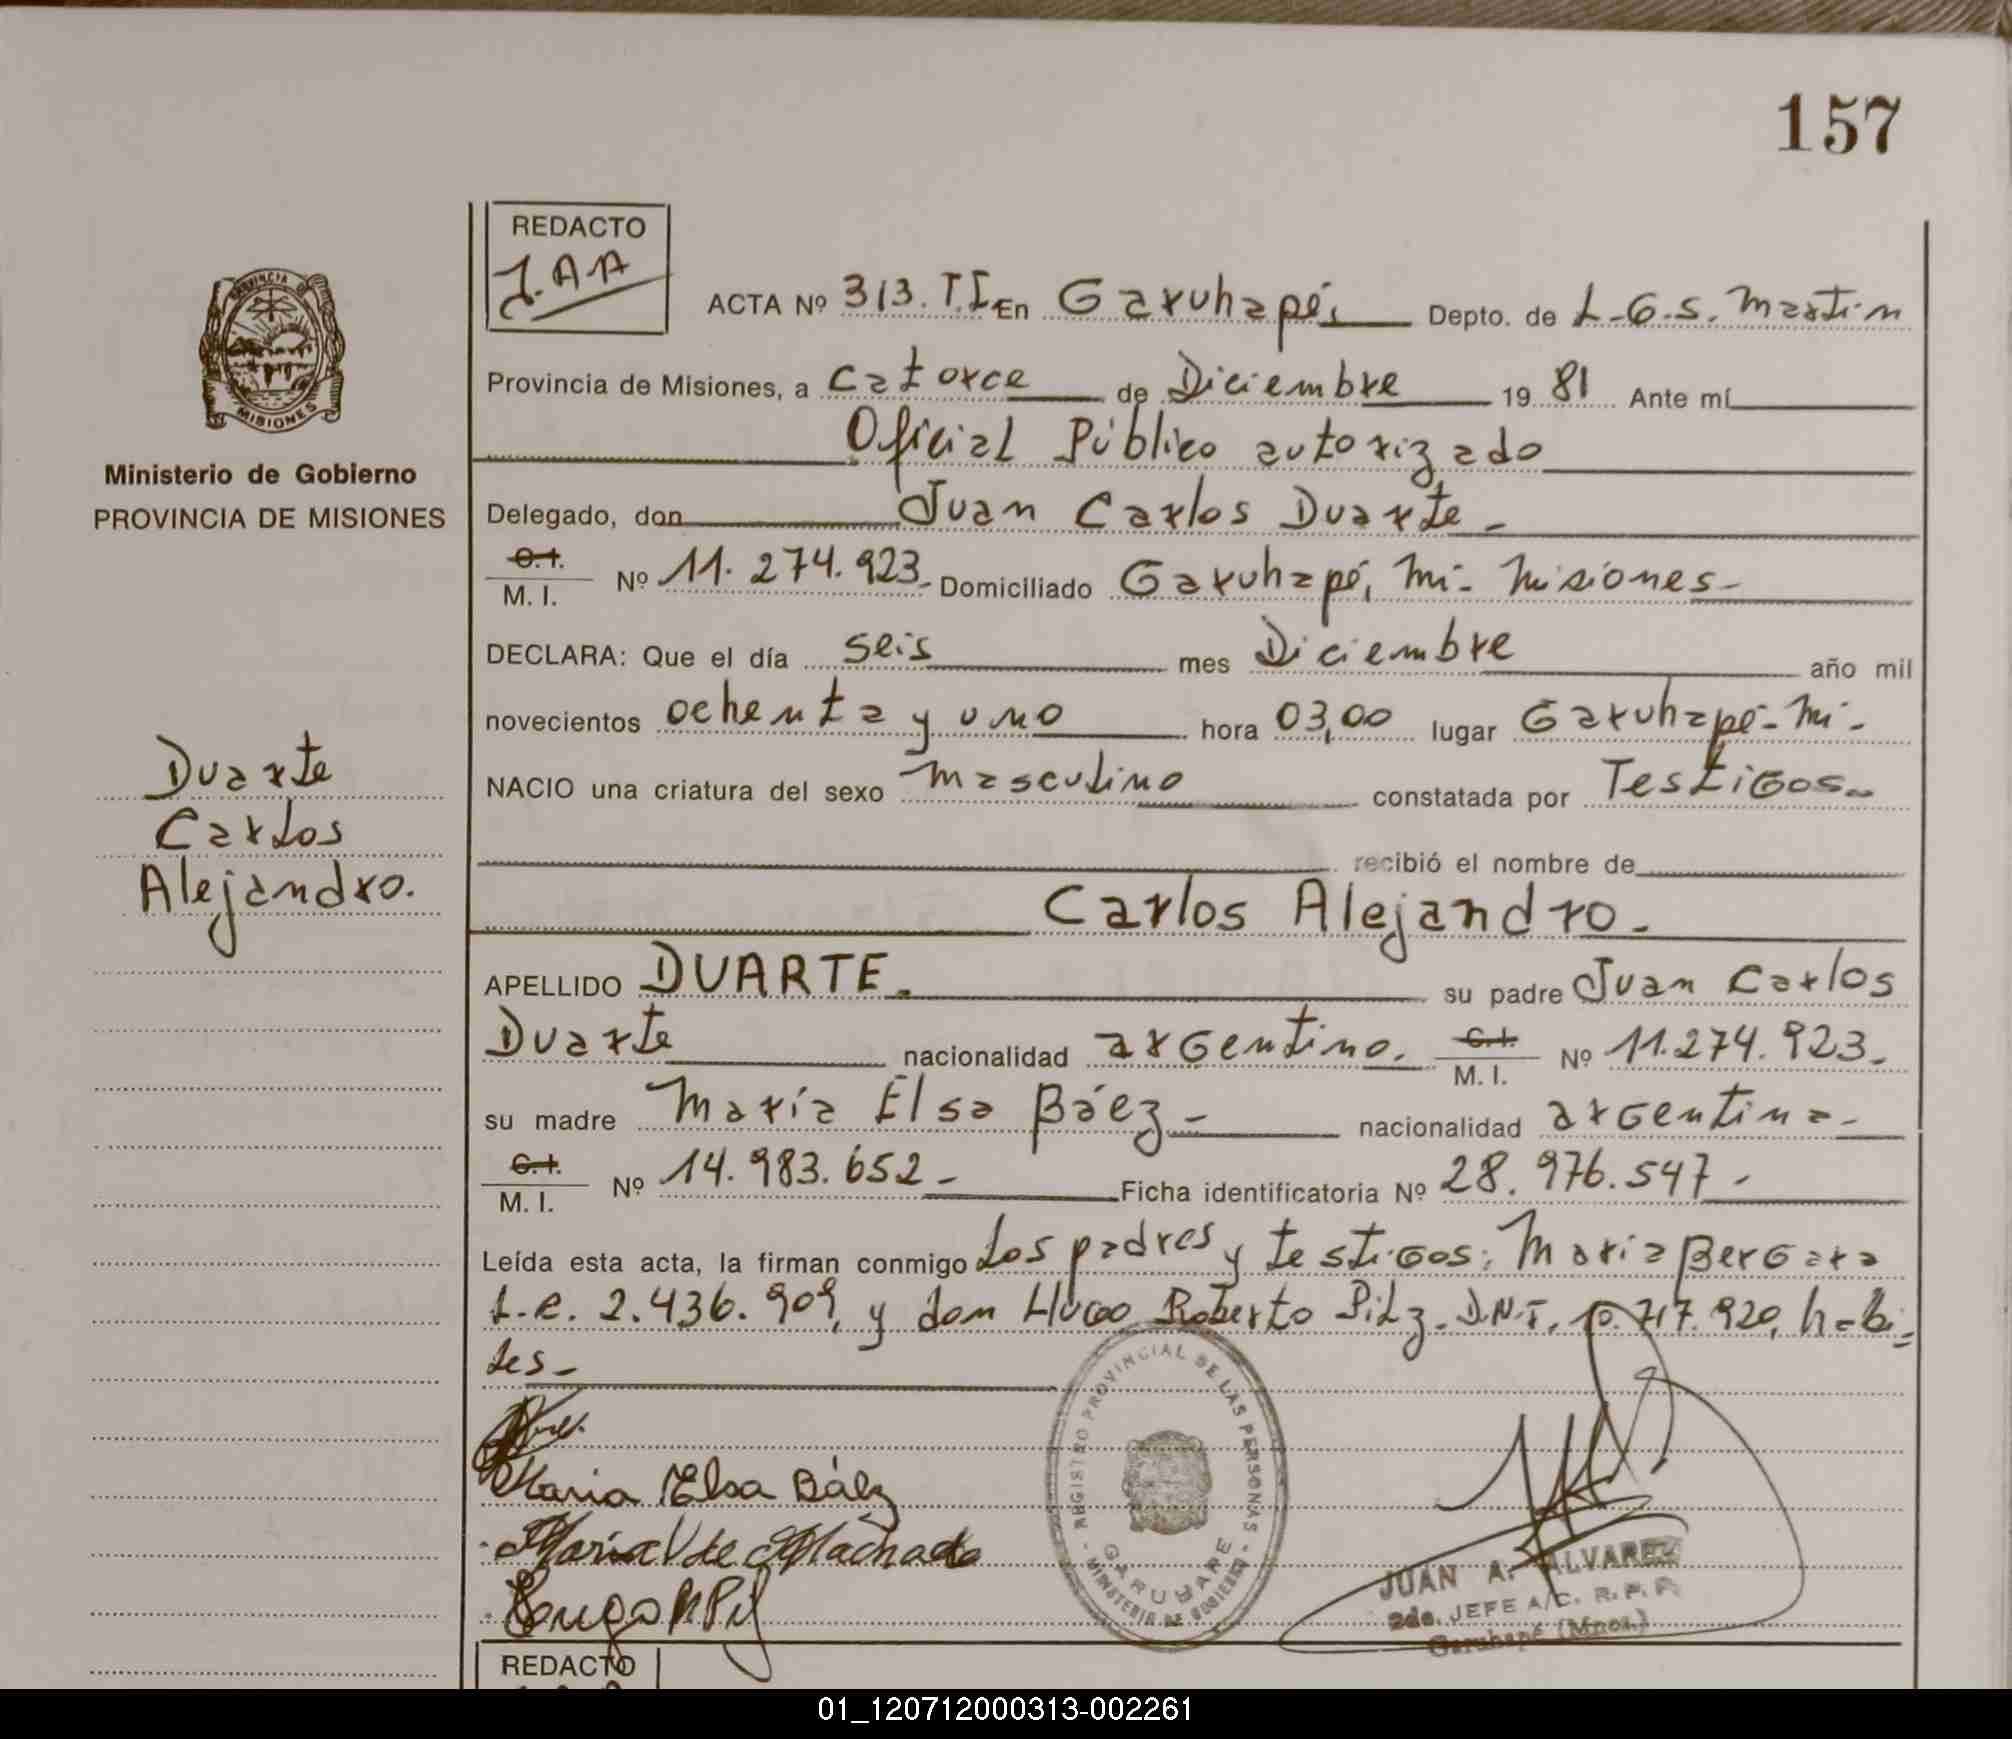 157
REDACTO
J.A.A
ACTA Nº 313. T.I En Garuhapé, Depto. de L.G.S. Martin
Provincia de Misiones, a catorce de Diciembre 19 81 Ante mí
Oficial Público autorizado
PROVINCIA DE
MISIONES
Ministerio de Gobierno
PROVINCIA DE MISIONES
Delegado, don Juan Carlos Duarte-
C.I.
M. I. Nº 11.274.923- Domiciliado Garuhapé, Mi- Misiones-
DECLARA: Que el día seis mes Diciembre año mil
novecientos ochenta y uno hora 03,00 lugar Garuhapé-Mi-
NACIO una criatura del sexo masculino constatada por Testigos-
recibió el nombre de
Carlos Alejandro-
Duarte
Carlos
Alejandro.
APELLIDO DUARTE. su padre Juan Carlos
Duarte nacionalidad argentino. C.I.
M. I. Nº 11.274.923-
su madre María Elsa Báez- nacionalidad argentina-
C.I.
M. I. Nº 14.983.652- Ficha identificatoria Nº 28.976.547-
Leída esta acta, la firman conmigo Los padres y testigos: Maria Bergara
L.e. 2.436.909, y don Hugo Roberto Pilz. D.N.I. 10.717.920, habi-
les-
Maria Elsa Báez
Maria V de Machado
Hugo R Pilz
REGISTRO PROVINCIAL DE LAS PERSONAS
MINISTERIO DE GOBIERNO
JUAN A. ALVAREZ
2do. JEFE A/C. R.P.P.
Garuhapé (Mnes.)
REDACTO
01_120712000313-002261